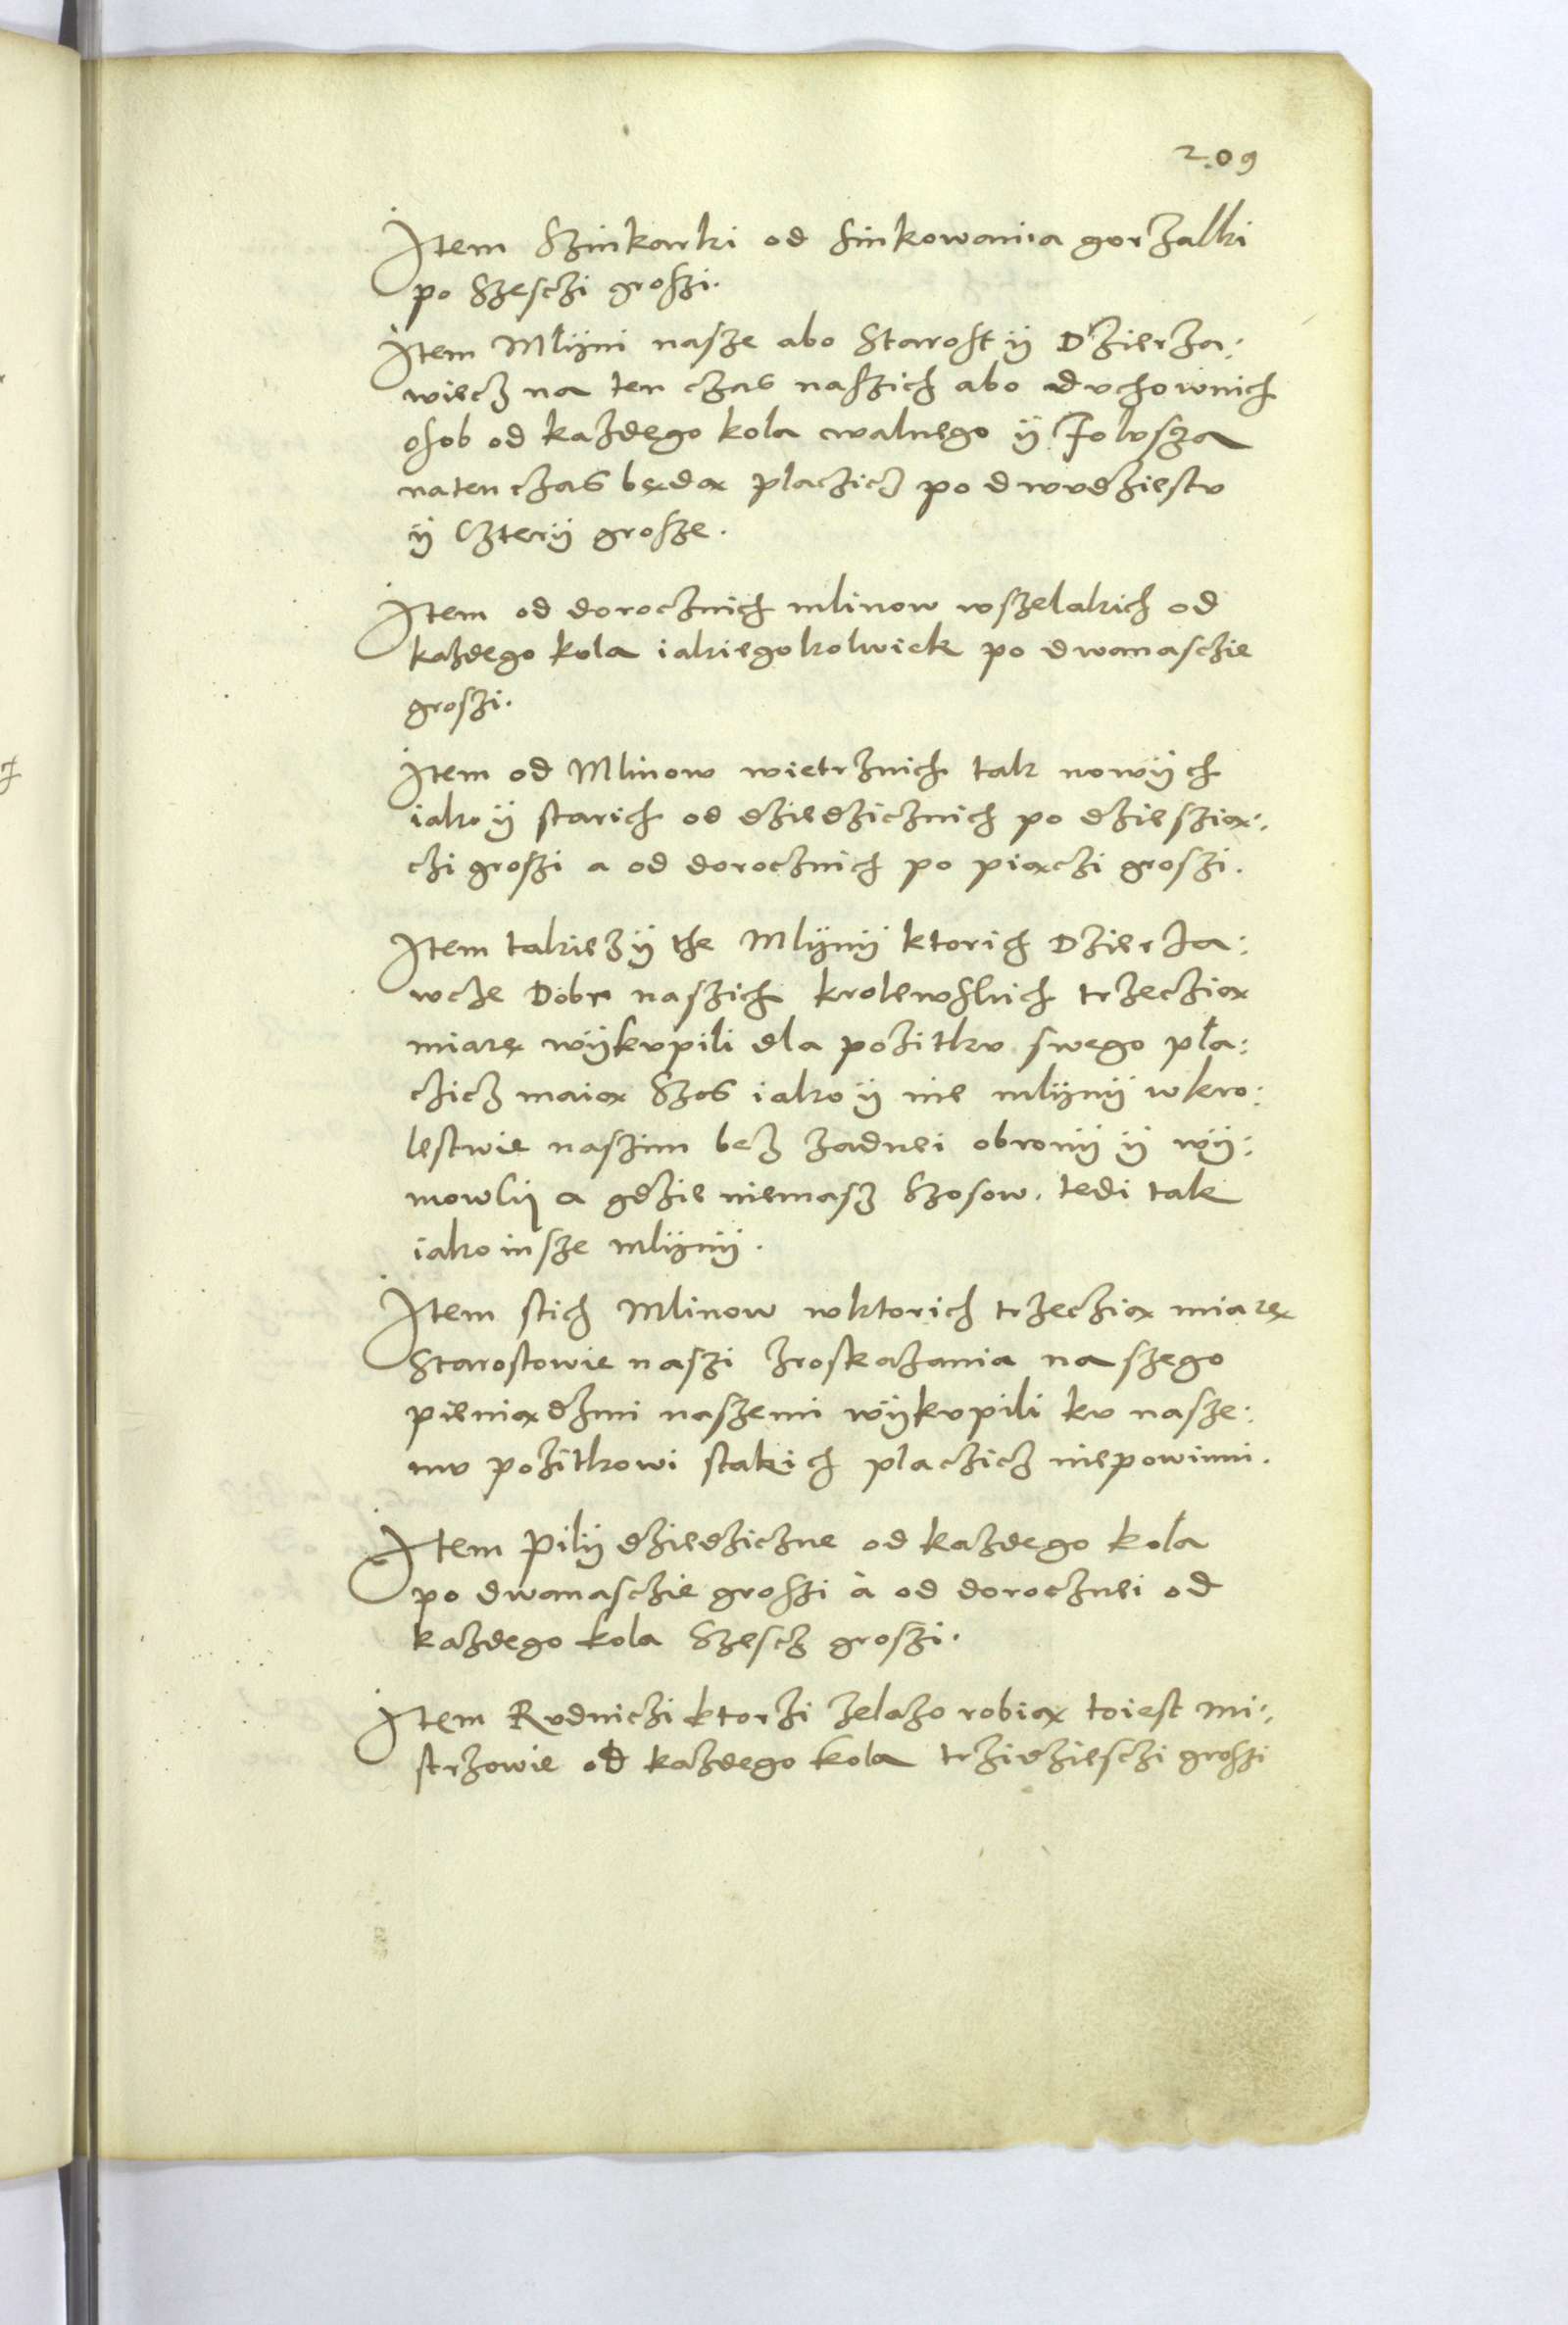 209
Item Szinkarki od sinkowania gorzalki
po Szesczi groszi.
Item Mlÿni nasze abo Starost ÿ Dzierza:
wiecz na ten czas naszich abo duchownich
osob od kazdego kola walnego ÿ Folusza
naten czas będą placzicz po dwudziestu
ÿ Czterÿ grosze.
Item od dorocznich mlinow wszelakich od
kazdego kola iakiegokolwiek po dwanasczie
groszi.
Item od Mlinow wietrznich tak nowÿch
iako ÿ starich od dziedzicznich po dzieszią:
czi groszi a od dorocznich po piączi groszi.
Item takiez ÿ the Mlÿnÿ ktorich Dzierza:
wcze Dobr naszich krolewskich trzeczią
miarę wÿkupili dla pozitku swego pła:
czicz maią Szos iako ÿ ine mlÿnÿ w kro:
lestwie naszim bez zadnei obronÿ ÿ wÿ:
mowkÿ a gdzie niemasz Szosow. tedi tak
iako insze mlÿnÿ.
Item stich Mlinow wktorich trzeczią miarę
Starostowie naszi zroskazania naszego
pieniądzmi naszemi wÿkupili ku nasze:
mu pozitkowi stakich placzicz niepowinni.
Item Pilÿ dziedziczne od kazdego koła
po dwanasczie groszi à od dorocznei od
kazdego kola Szescz groszi.
Item Rudniczi ktorzi zelazo robią toiest mi:
strzowie od kazdego kola trzidziesczi groszi